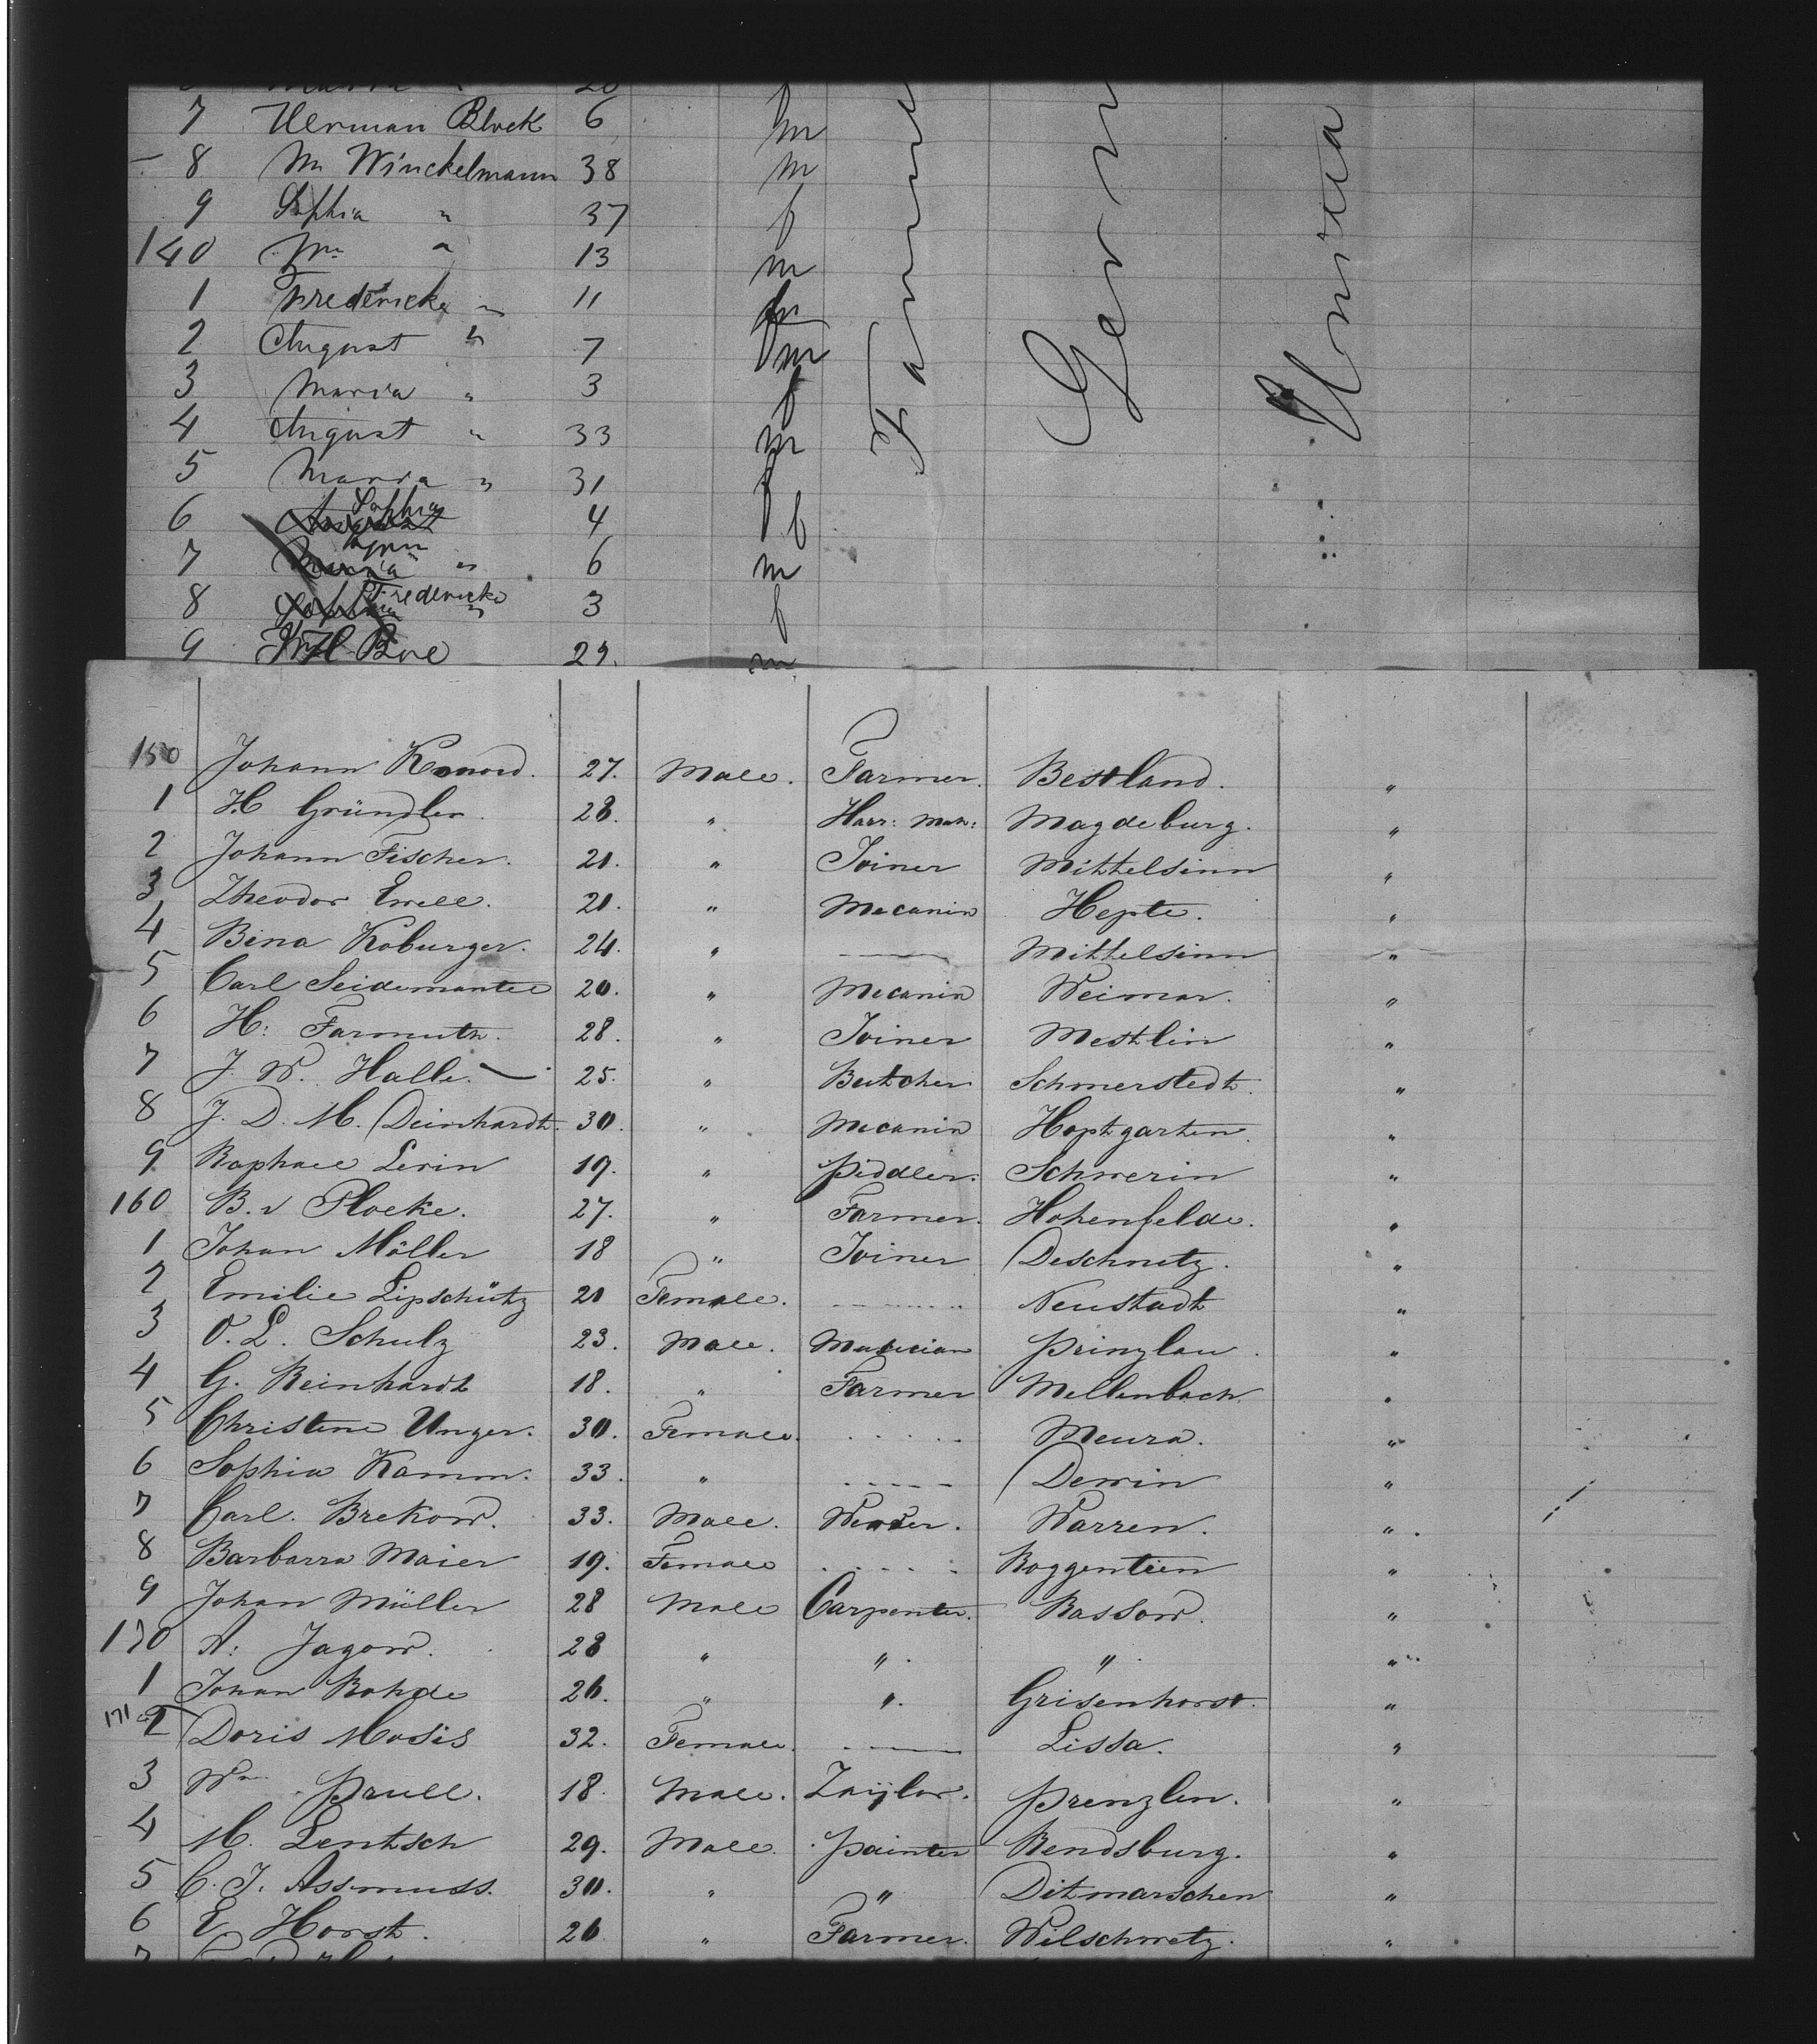 7 Herman Block 6 m
8 Wm Winckelmann 38 m
9 Sophia " 37 f
140 Wm " 13 m
1 Fredericke " 11
2 August " 7 m
3 Maria " 3 f
4 August " 33 m
5 Maria " 31 f
6 Sophia 4 f
7 " 6 m
8 Fredericke " 3 f
9 29. m
150 Johann 27. Male. Farmer. Bestland. "
1 H Gründler. 28. " Harr: Mak: Magdeburg. "
2 Johann Fischer. 21. " Joiner Mittelsinn "
3 Theodor 21. " Mecanin Hepte. "
4 Bina Koburger. 24. " Mittelsinn "
5 Carl Seidemantel 20. " Mecanin Weimar. "
6 H: Farmuth. 28. " Joiner Mestlin "
7 J. W. Halle. 25. " Butcher Schmerstedt. "
8 J. D. M. Deinhardt. 30. " Mecanin Hoptgarten. "
9 Raphael Levin 19. " Piddler. Schwerin "
160 B. v Ploeke. 27. " Farmer. Hohenfelde. "
1 Johan Möller 18 " Joiner Deschnetz. "
2 Emilie Lipschütz 21 Female. Neustadt "
3 O. L. Schulz 23. Male. Musician Prinzlau. "
4 G. Reinhardt 18. " Farmer Mellenbach. "
5 Christine Unger. 30. Female. Meura. "
6 Sophia Kamm. 33. " Demin "
7 Carl. Brekow. 33. Male. Warren. "
8 Barbarra Maier 19. Female Roggentien "
9 Johan Müller 28 Male Carpenter. Rassow. "
170 A: Jagow. 28 " ". ". "
1 Johan Rohde 26. " ". Grisenhorst. "
2 Doris Mosis 32. Female. Lissa. "
3 Wm Prull. 18. Male. Taijlor. Prenzlen. "
4 M. Lentsch 29. Male. Painter Rendsburg. "
5 C. J. Assmuss. 30. " " Ditmarschen "
6 E. Horst. 26. " Farmer. Wilschnetz. "